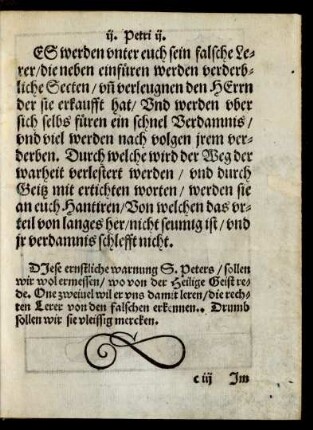 ij. Petri ij.
ES werden vnter euch sein falsche Le-
rer/die neben einfüren werden verderb-
liche Secten/ vñ verleugnen den HErrn
der sie erkaufft hat/ Vnd werden vber
sich selbs füren ein schnel Verdamnis/
vnd viel werden nach volgen jrem ver-
derben. Durch welche wird der Weg der
warheit verlestert werden / vnd durch
Geitz mit ertichten worten/ werden sie
an euch Hantiren/Von welchen das vr-
teil von langes her/nicht seumig ist/vnd
jr verdamnis schlefft nicht.
DIese ernstliche warnung S. Peters/ sollen
wir wol ermessen/ wo von der Heilige Geist re-
de. One zweiuel wil er vns damit leren/ die rech-
ten Lerer von den falschen erkennen.. Drumb
sollen wir sie vleissig mercken.
c iij Im